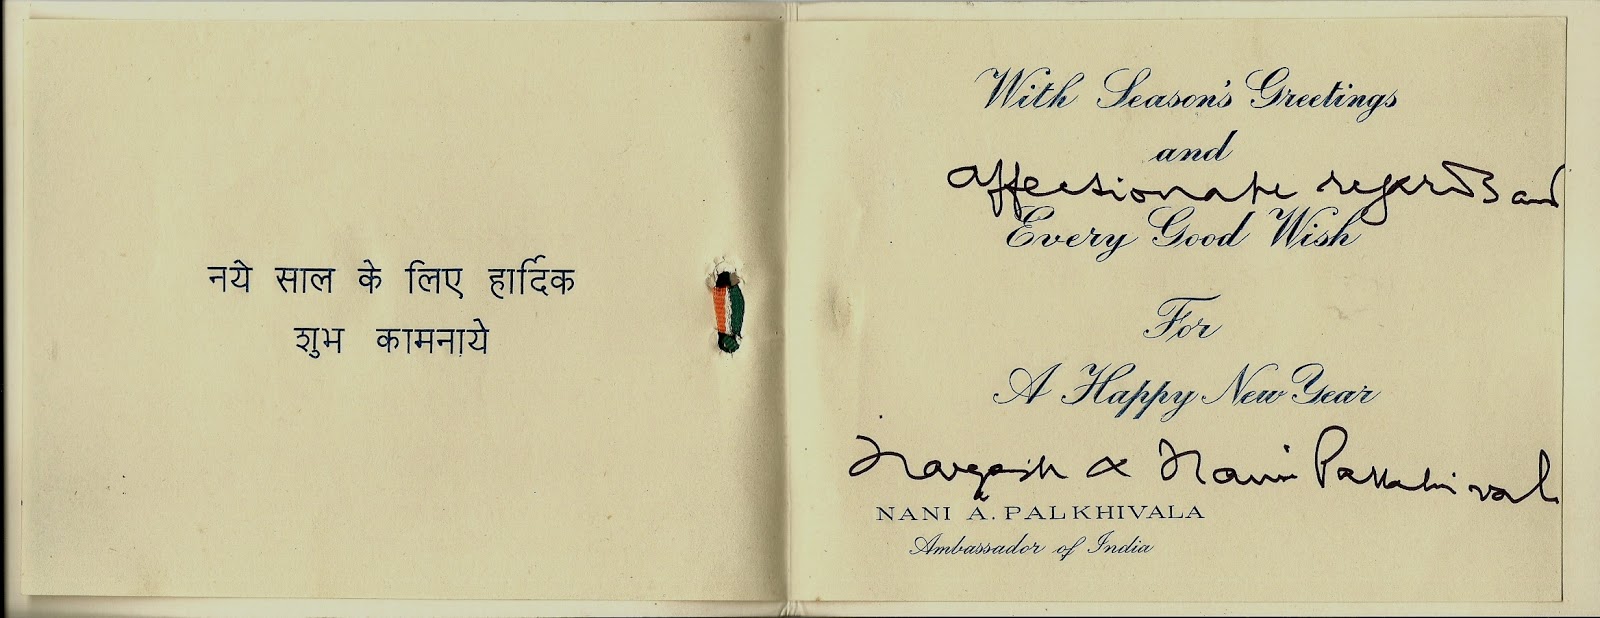 नये साल के लिए हार्दिक
शुभ कामनाये
With Season's Greetings
and
affectionate regards and
Every Good Wish
For
A Happy New Year
Nargesh & Nani Palkhivala
NANI A. PALKHIVALA
Ambassador of India